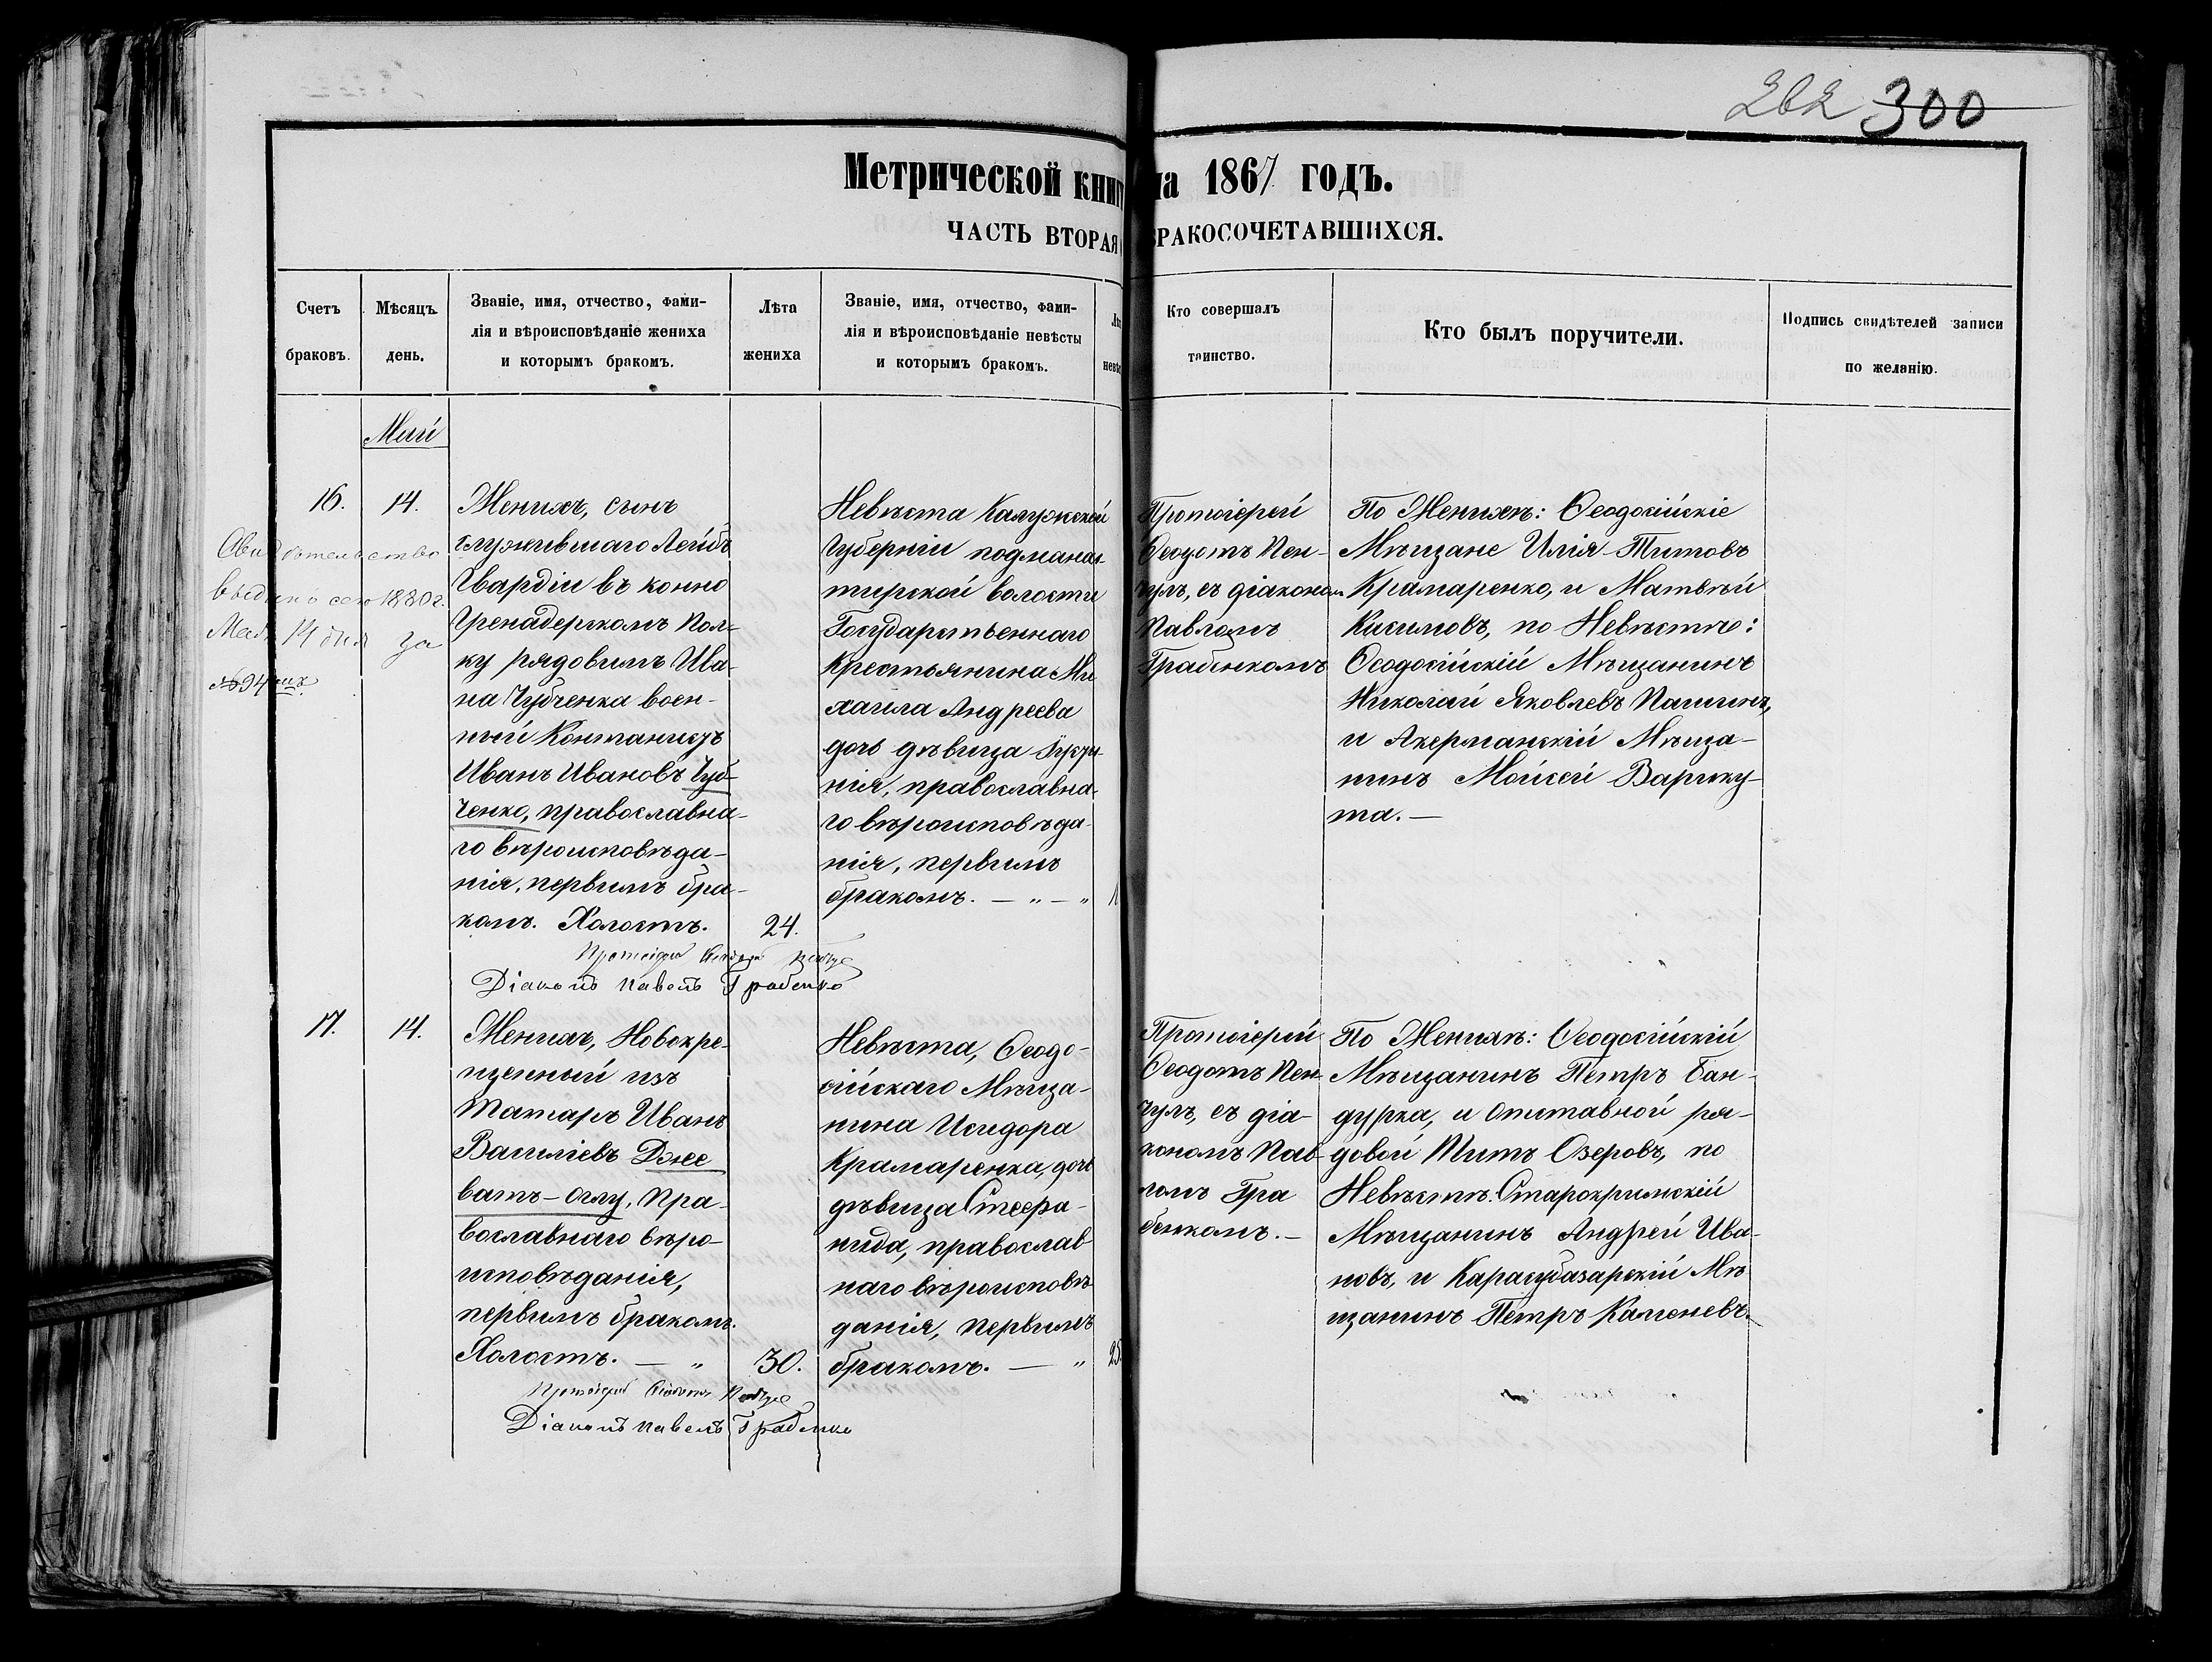 262 300
Метрической книг на 1867 годъ.
ЧАСТЬ ВТОРАЯ БРАКОСОЧЕТАВШИХСЯ.
Счетъ
браковъ.
Мѣсяцъ.
день.
Званіе, имя, отчество, фами-
лія и вѣроисповѣданіе жениха
и которымъ бракомъ.
Лѣта
жениха
Званіе, имя, отчество, фами-
лія и вѣроисповѣданіе невѣсты
и которымъ бракомъ.
Кто совершалъ
таинство.
Кто былъ поручители.
Подпись свидѣтелей записи
по желанію.
Май
16.
14.
Свидѣтельство
выдано сего 1880 г.
Мая 14 дня за
№ 94
Женихъ, сынъ
служившаго Лейбъ
Гвардіи въ конно
Гренадерскомъ Пол-
ку рядовимъ Ива-
на Чубченка воен-
ный Контанистъ
Иванъ Ивановъ Чуб-
ченко, православна-
го вѣроисповѣда-
нія, первимъ бра-
комъ. Холостъ.
24.
Невѣста Калужской
Губерніи подмонас-
тирской волости
Государственнаго
Крестьянина Ми
хаила Андреева
дочь дѣвица
нія, православна-
го вѣроисповѣда-
нія, первимъ
бракомъ. — „ — „
Протоіерей
Ѳеодотъ Пен-
чулъ, съ діакономъ
Павломъ
Грабенкомъ
По Женихѣ: Ѳеодосійскіе
Мѣщане Илія Титовъ
Крамаренко, и Матвѣй
Касимовъ, по Невѣстѣ:
Ѳеодосійскій Мѣщанинъ
Николай Яковлевъ Пашинъ,
и Акерманскій Мѣща-
нинъ Мойсей Варику-
та. —
Протоіерей Ѳеодотъ Пенчулъ
Діаконъ Павелъ Грабенко
17.
14.
Женихъ, Новокре-
щенный изъ
Татаръ Иванъ
Василіевъ Дже
ватъ-Оглу, Пра-
вославнаго вѣро-
исповѣданія,
первимъ бракомъ.
Холостъ. — „
30.
Невѣста, Ѳеодо-
сійскаго Мѣща-
нина Исидора
Крамаренка, дочь
дѣвица Стефа-
нида, православ
наго вѣроисповѣ
данія, первимъ
бракомъ. — „
25.
Протоіерей
Ѳеодотъ Пен-
чулъ, съ діа-
кономъ Пав-
ломъ Гра
бенкомъ. —
По Женихѣ: Ѳеодосійскій
Мѣщанинъ Петръ Бан-
дурка, и Отставной ря-
довой Титъ Озеровъ, по
Невѣстѣ: Старокримскій
Мѣщанинъ Андрей Ива-
новъ, и Карасубазарскій Мѣ
щанинъ Петръ Каменевъ.
Протоіерей Ѳеодотъ Пенчулъ
Діаконъ Павелъ Грабенко